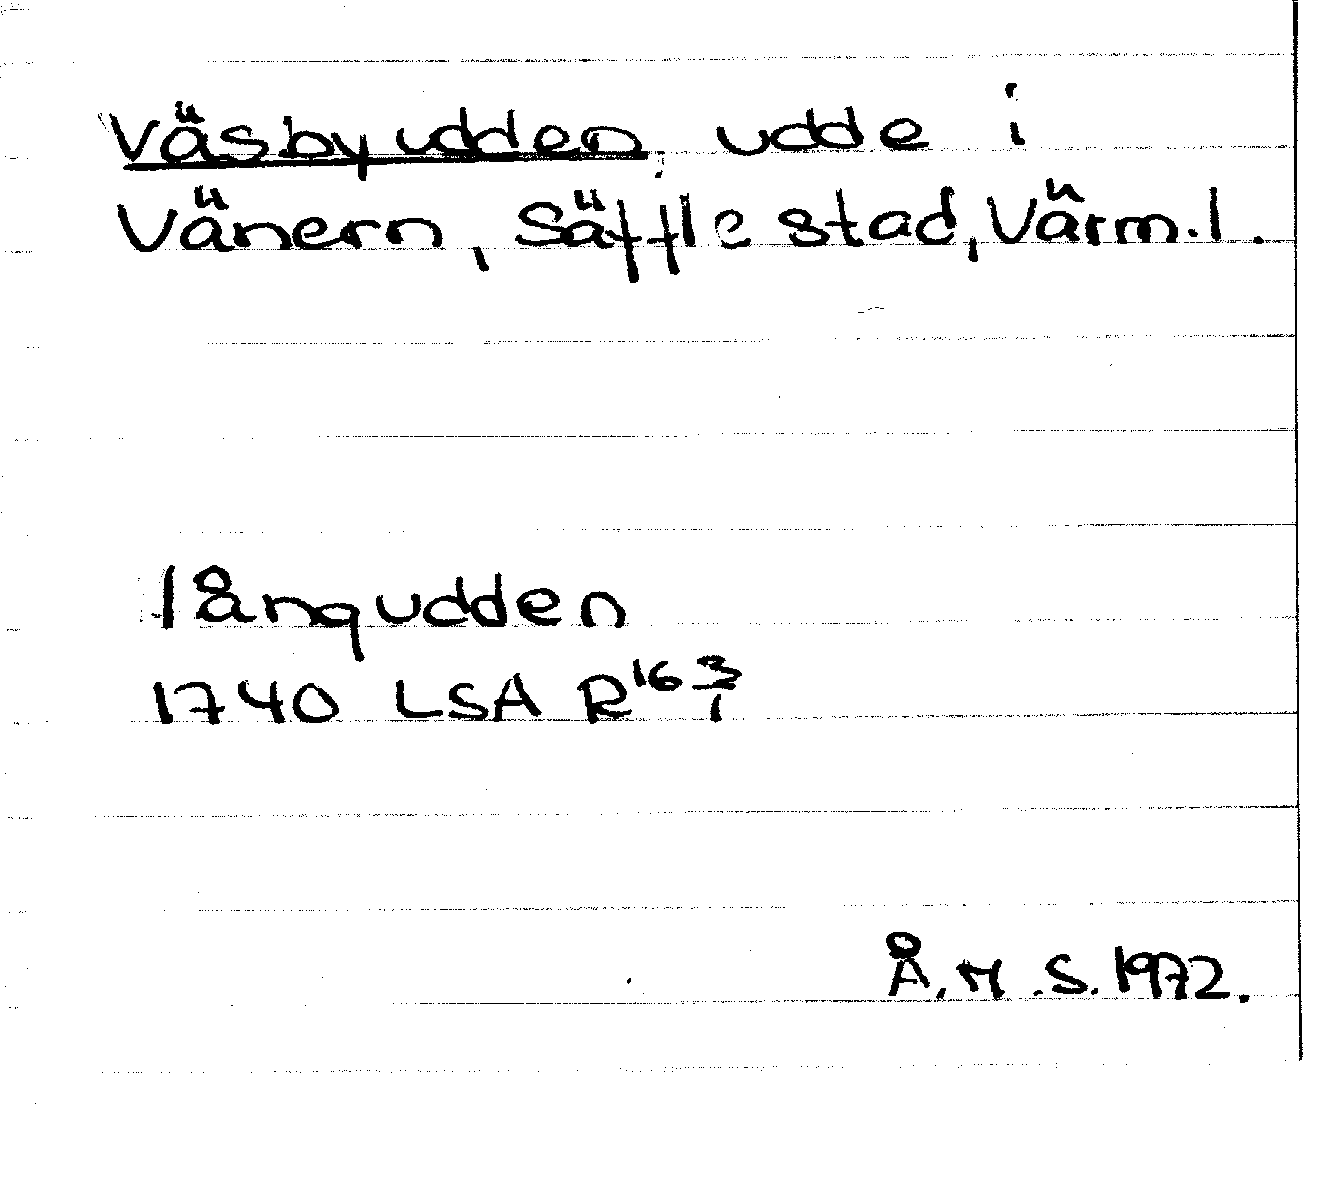 Väsbyudden, udde i
Vänern, Säffle stad, Värm.l.
långudden
1740 LSA R¹⁶ 3/1
Å.M.S.1972.